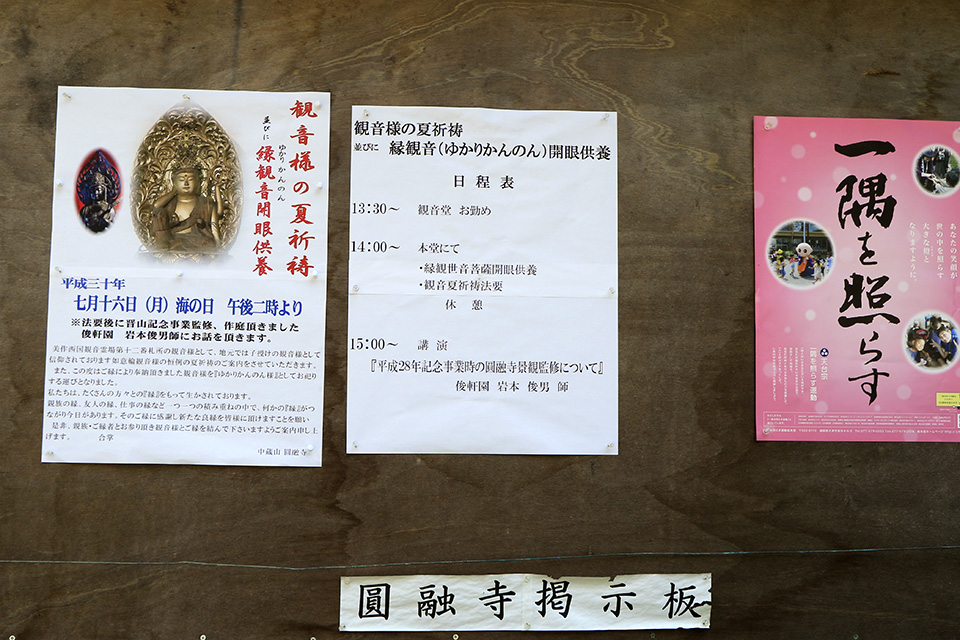 観音様の夏祈祷
並びに
ゆかりかんのん
縁観音開眼供養
平成三十年
七月十六日(月)海の日 午後二時より
※法要後に晋山記念事業監修、作庭頂きました
俊軒園 岩本俊男師にお話を頂きます。
美作西国観音霊場第十二番札所の観音様として、地元では子授けの観音様として
信仰されております如意輪観音様の恒例の夏祈祷のご案内をさせていただきます。
また、この度はご縁により奉納頂きました観音様を『ゆかりかんのん様』としてお祀り
する運びとなりました。
私たちは、たくさんの方々との『縁』をもって生かされております。
親族の縁、友人の縁、仕事の縁など一つ一つの積み重ねの中で、何かの『縁』がつ
ながり今日があります。そのご縁に感謝し新たな良縁を皆様に頂けますことを願い
是非、親族・ご縁者とお参り頂き観音様とご縁を結んで下さいますようご案内申し上
げます。 合掌
中蔵山 圓融寺
観音様の夏祈祷
並びに 縁観音(ゆかりかんのん)開眼供養
日程表
13:30～ 観音堂 お勤め
14:00～ 本堂にて
・縁観世音菩薩開眼供養
・観音夏祈祷法要
休憩
15:00～ 講演
『平成28年記念事業時の圓融寺景観監修について』
俊軒園 岩本 俊男 師
一隅を照らす
あなたの笑顔が
世の中を照らす
大きな燈と
なりますように。
天台宗
一隅を照らす運動
圓融寺掲示板